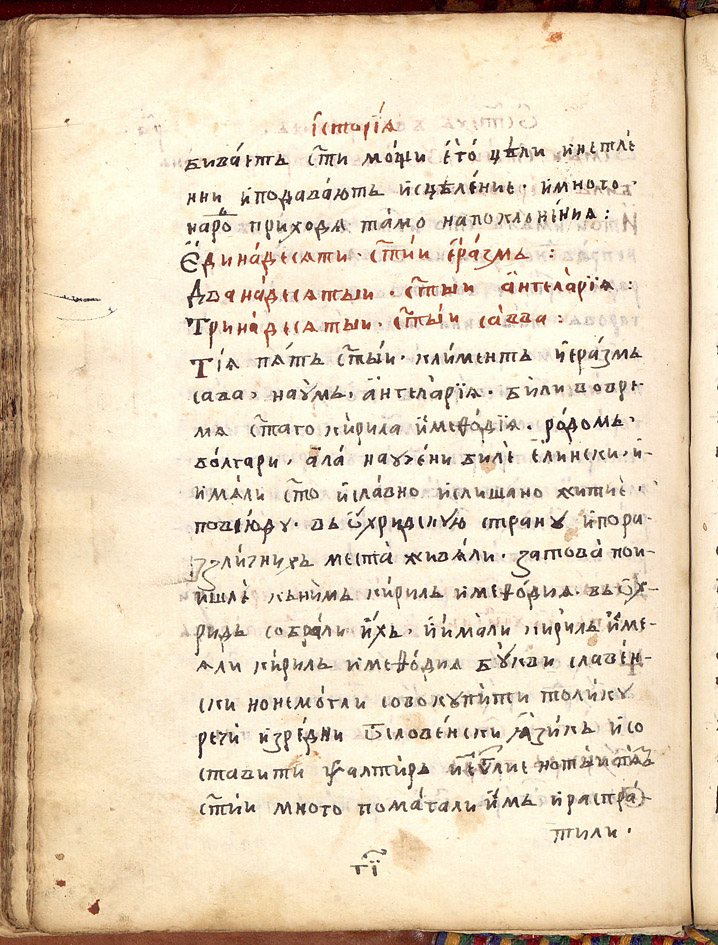 історїѧ
биваетъ ст҃и мощи єго цѣли и нетле
нни и подаваютъ исцѣление· и много·
наро приходѧ тамо на поклонѣния:
Єдинадесѧти· ст҃ии єразмъ:
Дванадесѧтыи· ст҃ыи ангеларїѧ:
Тринадесѧтыи· ст҃ыи савва:
Тїѧ пѧтъ ст҃ыи· климентъ и еразмъ
сава· наумъ· ангеларїѧ· били во вре
мѧ ст҃аго кирила и меѳодїѧ· родомъ·
болгари· ала научени билѐ єлински· и
имѧли ст҃о и славно и слишано житиѐ·
повсюду· въ ѡхридскую страну и пора
зличнихъ места живѧли· затова пои
ишлѐ къ нимъ кирилъ и меѳодиѧ· въ ѡх
ридъ собрали ихъ· и имали кирилъ и ме
ѧли кирилъ и меѳодиѧ букви славен
ски но не могли совокупити толику
речи изредни ѿ словенски ѧзикъ и со
ставити ѱалтиръ и еѵ҃лие но тыи пѧтъ
ст҃ии много помагали имъ и распра
тили·
гї